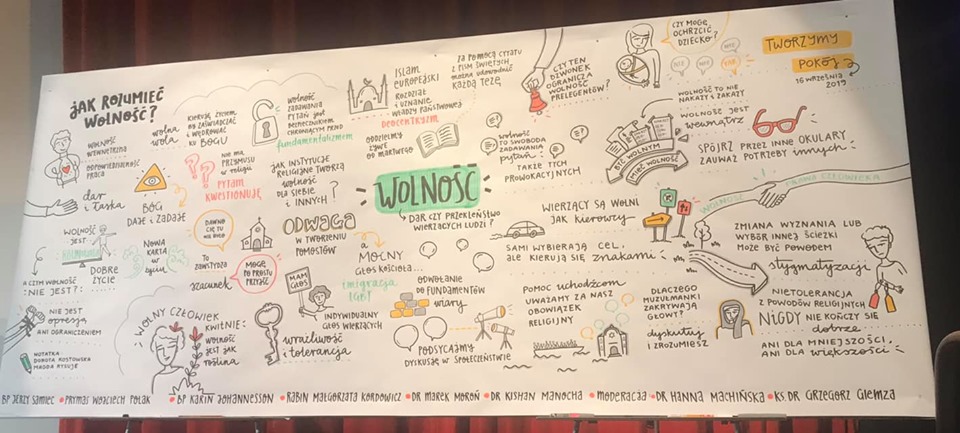 JAK ROZUMIEĆ
WOLNOŚĆ?
WOLNOŚĆ
WEWNĘTRZNA
ODPOWIEDZIALNOŚĆ
PRACA
dar
i łaska
wolna
wola
BÓG
DAJE I ZADAJE
KIERUJĘ ŻYCIEM
BY ZAŚWIADCZAĆ
I WĘDROWAĆ
KU BOGU
NIE MA
PRZYMUSU
w religii
PYTAM
KWESTIONUJĘ
WOLNOŚĆ
ZADAWANIA
PYTAŃ JEST
BEZPIECZNIKIEM
CHRONIĄCYM PRZED
fundamentalizmem
JAK INSTYTUCJE
RELIGIJNE TWORZĄ
WOLNOŚĆ
DLA SIEBIE
I INNYCH?
ISLAM
EUROPEJSKI
ROZDZIAŁ
I UZNANIE
WŁADZY PAŃSTWOWEJ
DEOCENTRYZM
ODDZIELMY
ŻYWE
OD MARTWEGO
ZA POMOCĄ CYTATU
Z PISM ŚWIĘTYCH
można udowodnić
KAŻDĄ TEZĘ
CZY TEN
DZWONEK
OGRANICZA
WOLNOŚĆ
PRELEGENTÓW?
CZY MOGĘ
OCHRZCIĆ
DZIECKO?
NIE
NIE
NIE
TAK
TWORZYMY
POKÓJ
16 WRZEŚNIA
2019
WOLNOŚĆ TO NIE
NAKAZY I ZAKAZY
WOLNOŚĆ JEST
wewnątrz
BYĆ WOLNYM
MIEĆ WOLNOŚĆ
SPÓJRZ PRZEZ INNE OKULARY
ZAUWAŻ POTRZEBY innych!
WOLNOŚĆ
TO SWOBODA
ZADAWANIA
pytań
TAKŻE TYCH
PROWOKACYJNYCH
WOLNOŚĆ
DAR CZY PRZEKLEŃSTWO
WIERZĄCYCH LUDZI?
WIERZĄCY SĄ WOLNI
JAK kierowcy
SAMI WYBIERAJĄ CEL,
ALE KIERUJĄ SIĘ znakami
WOLNOŚĆ
PRAWA CZŁOWIEKA
ZMIANA WYZNANIA LUB
WYBÓR INNEJ ŚCIEŻKI
MOŻE BYĆ POWODEM
stygmatyzacji
NIETOLERANCJA
Z POWODÓW RELIGIJNYCH
NIGDY NIE KOŃCZY SIĘ
dobrze
ANI DLA MNIEJSZOŚCI,
ANI DLA większości
WOLNOŚĆ
JEST
DOBRE
ŻYCIE
NOWA
KARTA W
życiu
A CZYM WOLNOŚĆ
NIE JEST?
NIE JEST
opresją
ANI OGRANICZENIEM
NOTATKA
DOROTA KOSTOWSKA
MAGDA RYSUJE
DAWNO
CIĘ TU
NIE BYŁO
TO
ZAWSTYDZA
szacunek
MOGĘ
PO PROSTU
PRZYJŚĆ
ODWAGA
W TWORZENIU
POMOSTÓW
MAM
GŁOS
INDYWIDUALNY
GŁOS WIERZĄCYCH
WOLNY CZŁOWIEK
KWITNIE:
WOLNOŚĆ
JEST JAK
roślina
wrażliwość
i tolerancja
A
MOCNY
GŁOS KOŚCIOŁA...
imigracja
LGBT
ODWOŁANIE
DO FUNDAMENTÓW
wiary
PODSYCAJMY
DYSKUSJĘ W SPOŁECZEŃSTWIE
POMOC uchodźcom
UWAŻAMY ZA NASZ
OBOWIĄZEK
RELIGIJNY
DLACZEGO
MUZUŁMANKI
ZAKRYWAJĄ
GŁOWY?
dyskutuj
I ZROZUMIESZ
BP JERZY SAMIEC • PRYMAS WOJCIECH POLAK • BP KARIN JOHANNESSON • RABIN MAŁGORZATA KORDOWICZ • DR MAREK MOROŃ • DR KISHAN MANOCHA • MODERACJA • DR HANNA MACHIŃSKA • KS. DR GRZEGORZ GIEMZA